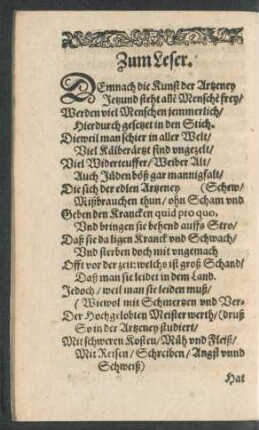 Zum Leser.
DEmnach die Kunst der Artzeney
Jetzund steht allē Menschē frey/
Werden viel Menschen jemmerlich/
Hierdurch gesetzet in den Stich.
Dieweil man schier in aller Welt/
Viel Kälberärtzt sind vngezelt/
Viel Widerteuffer/ Weiber Alt/
Auch Jüden böß gar mannigfalt/
Die sich der edlen Artzeney (Schew/
Mißbrauchen thun/ ohn Scham vnd
Geben den Krancken quid pro quo,
Vnd bringen sie behend auffs Stro/
Daß sie da ligen Kranck vnd Schwach/
Vnd sterben doch mit vngemach
Offt vor der zeit: welchs ist groß Schand/
Daß man sie leidet in dem Land.
Jedoch/ weil man sie leiden muß/
(Wiewol mit Schmertzen vnd Ver-
Der Hochgelobten Meister werth/ (druß
So in der Artzeney studiert/
Mit schweren Kosten/ Müh vnd Fleiß/
Mit Reisen/ Schreiben/ Angst vnnd
Schweiß)
Hat